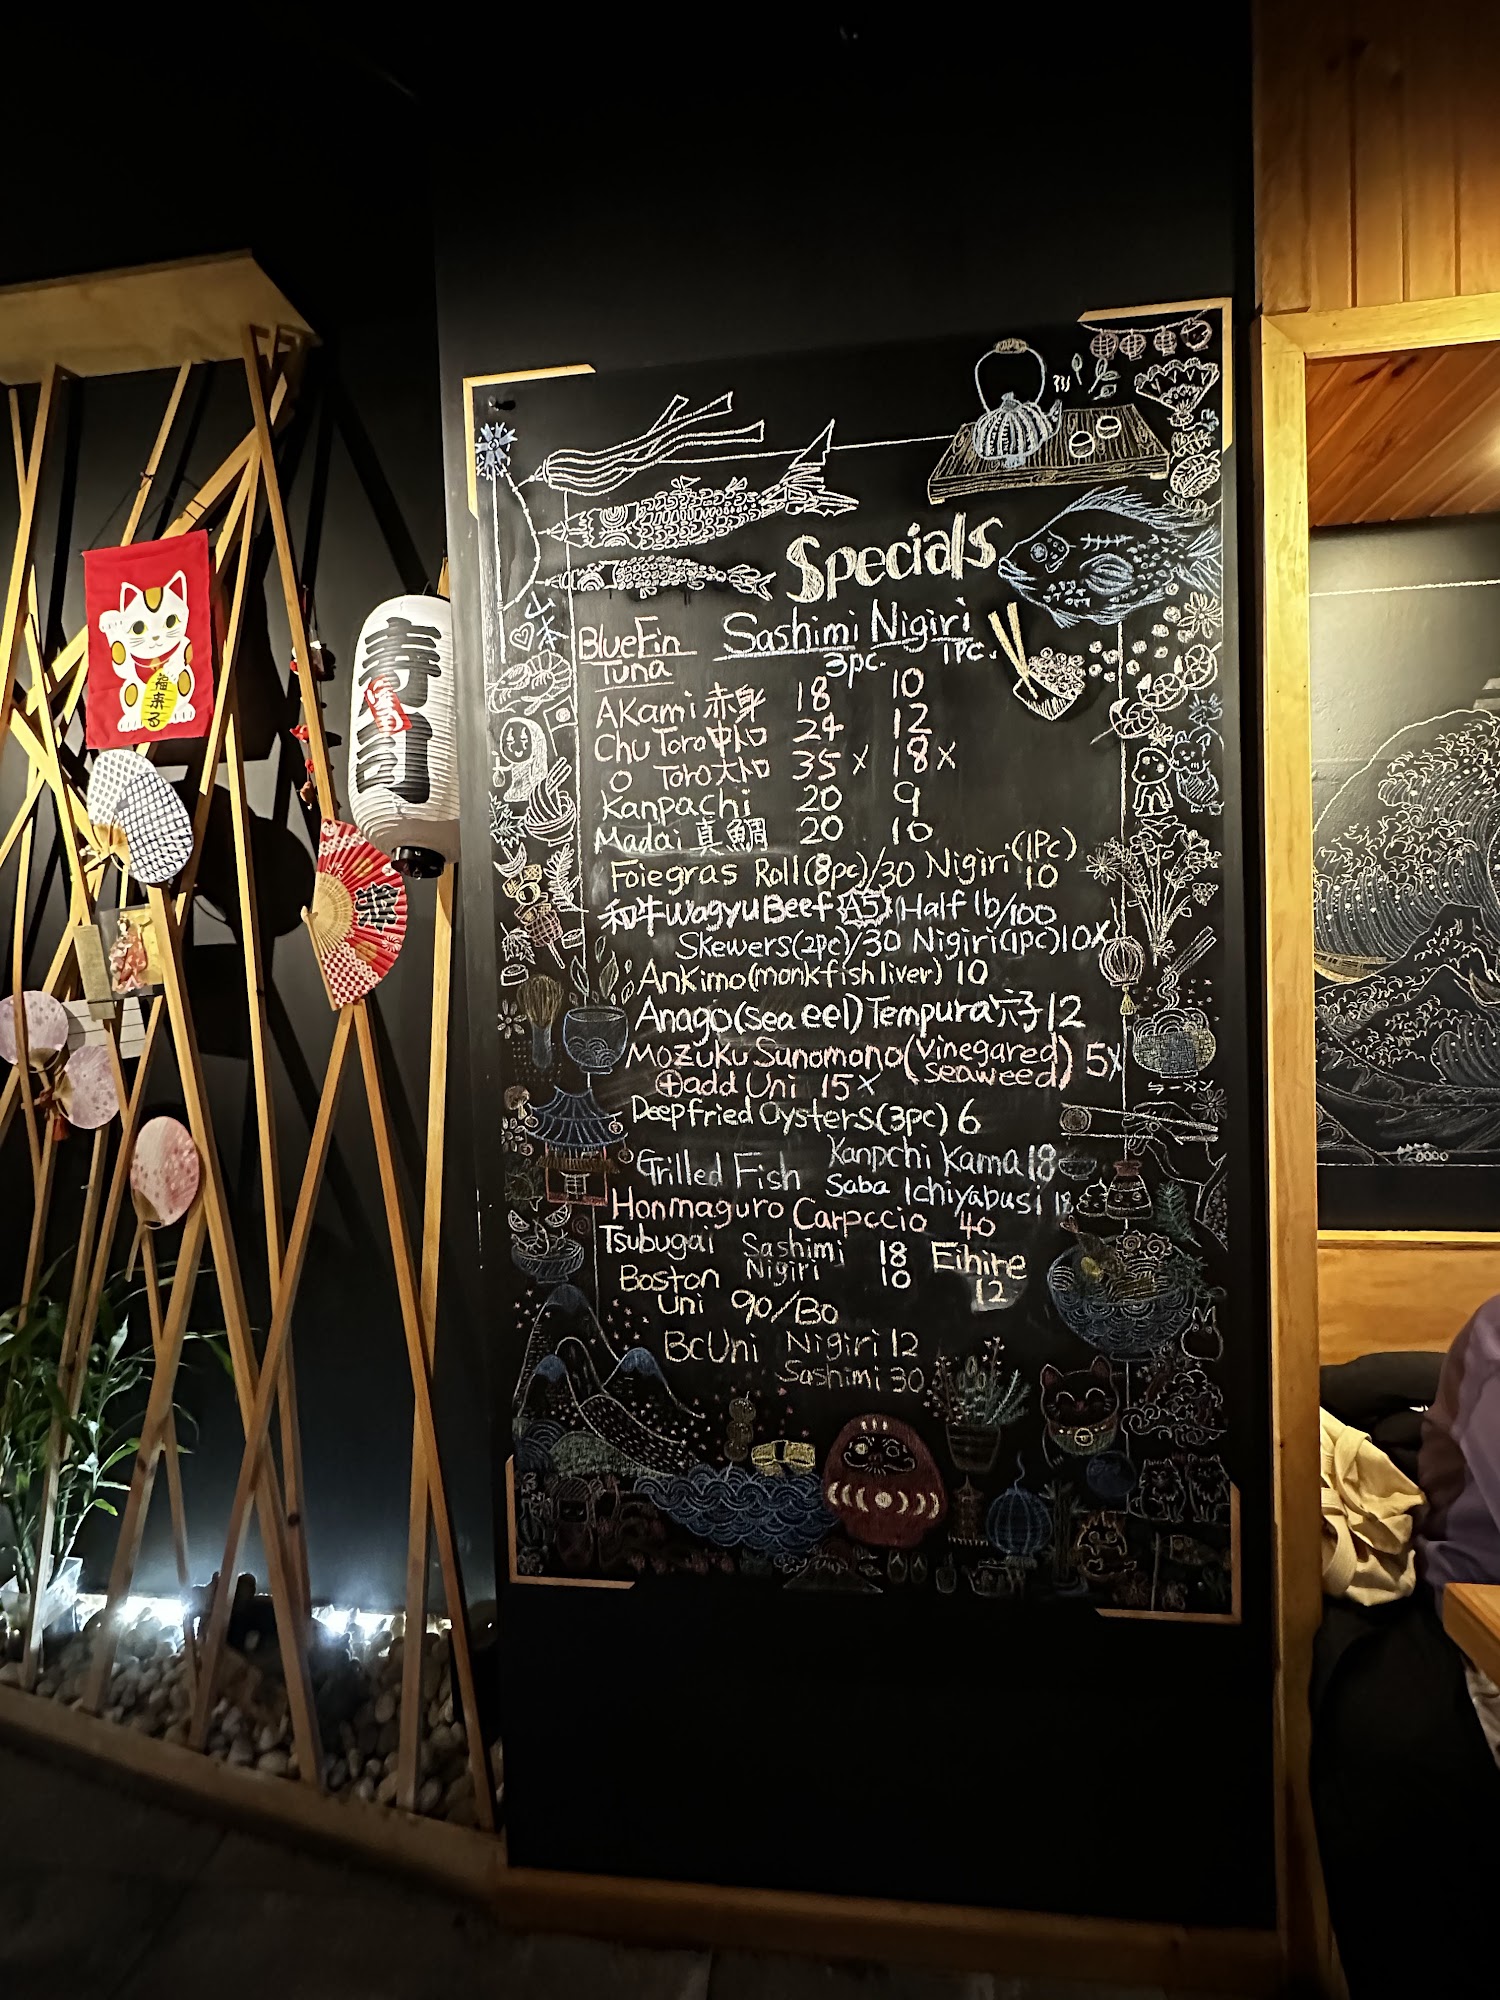 Specials
BlueFin Sashimi Nigiri
Tuna 3pc. 1pc.
Akami 赤身 18 10
Chu Toro 中トロ 24 12
O Toro 大トロ 35 x 18 x
Kanpachi 20 9
Madai 真鯛 20 10
Foiegras Roll(8pc)/30 Nigiri(1Pc) 10
和牛 Wagyu Beef (A5) Half lb/100
Skewers(2pc)/30 Nigiri(1pc)10X
Ankimo(monkfish liver) 10
Anago(sea eel) Tempura 穴子 12
Mozuku Sunomono(vinegared seaweed) 5X
+add Uni 15x
Deepfried Oysters(3pc) 6
Grilled Fish Kanpchi Kama 18
Saba Ichiyabusi 18
Honmaguro Carpccio 40
Tsubugai Sashimi 18 Eihire
Nigiri 10 12
Boston
Uni 90/Bo
BcUni Nigiri 12
Sashimi 30
ラーメン
山
本
福来る
寿司
祭